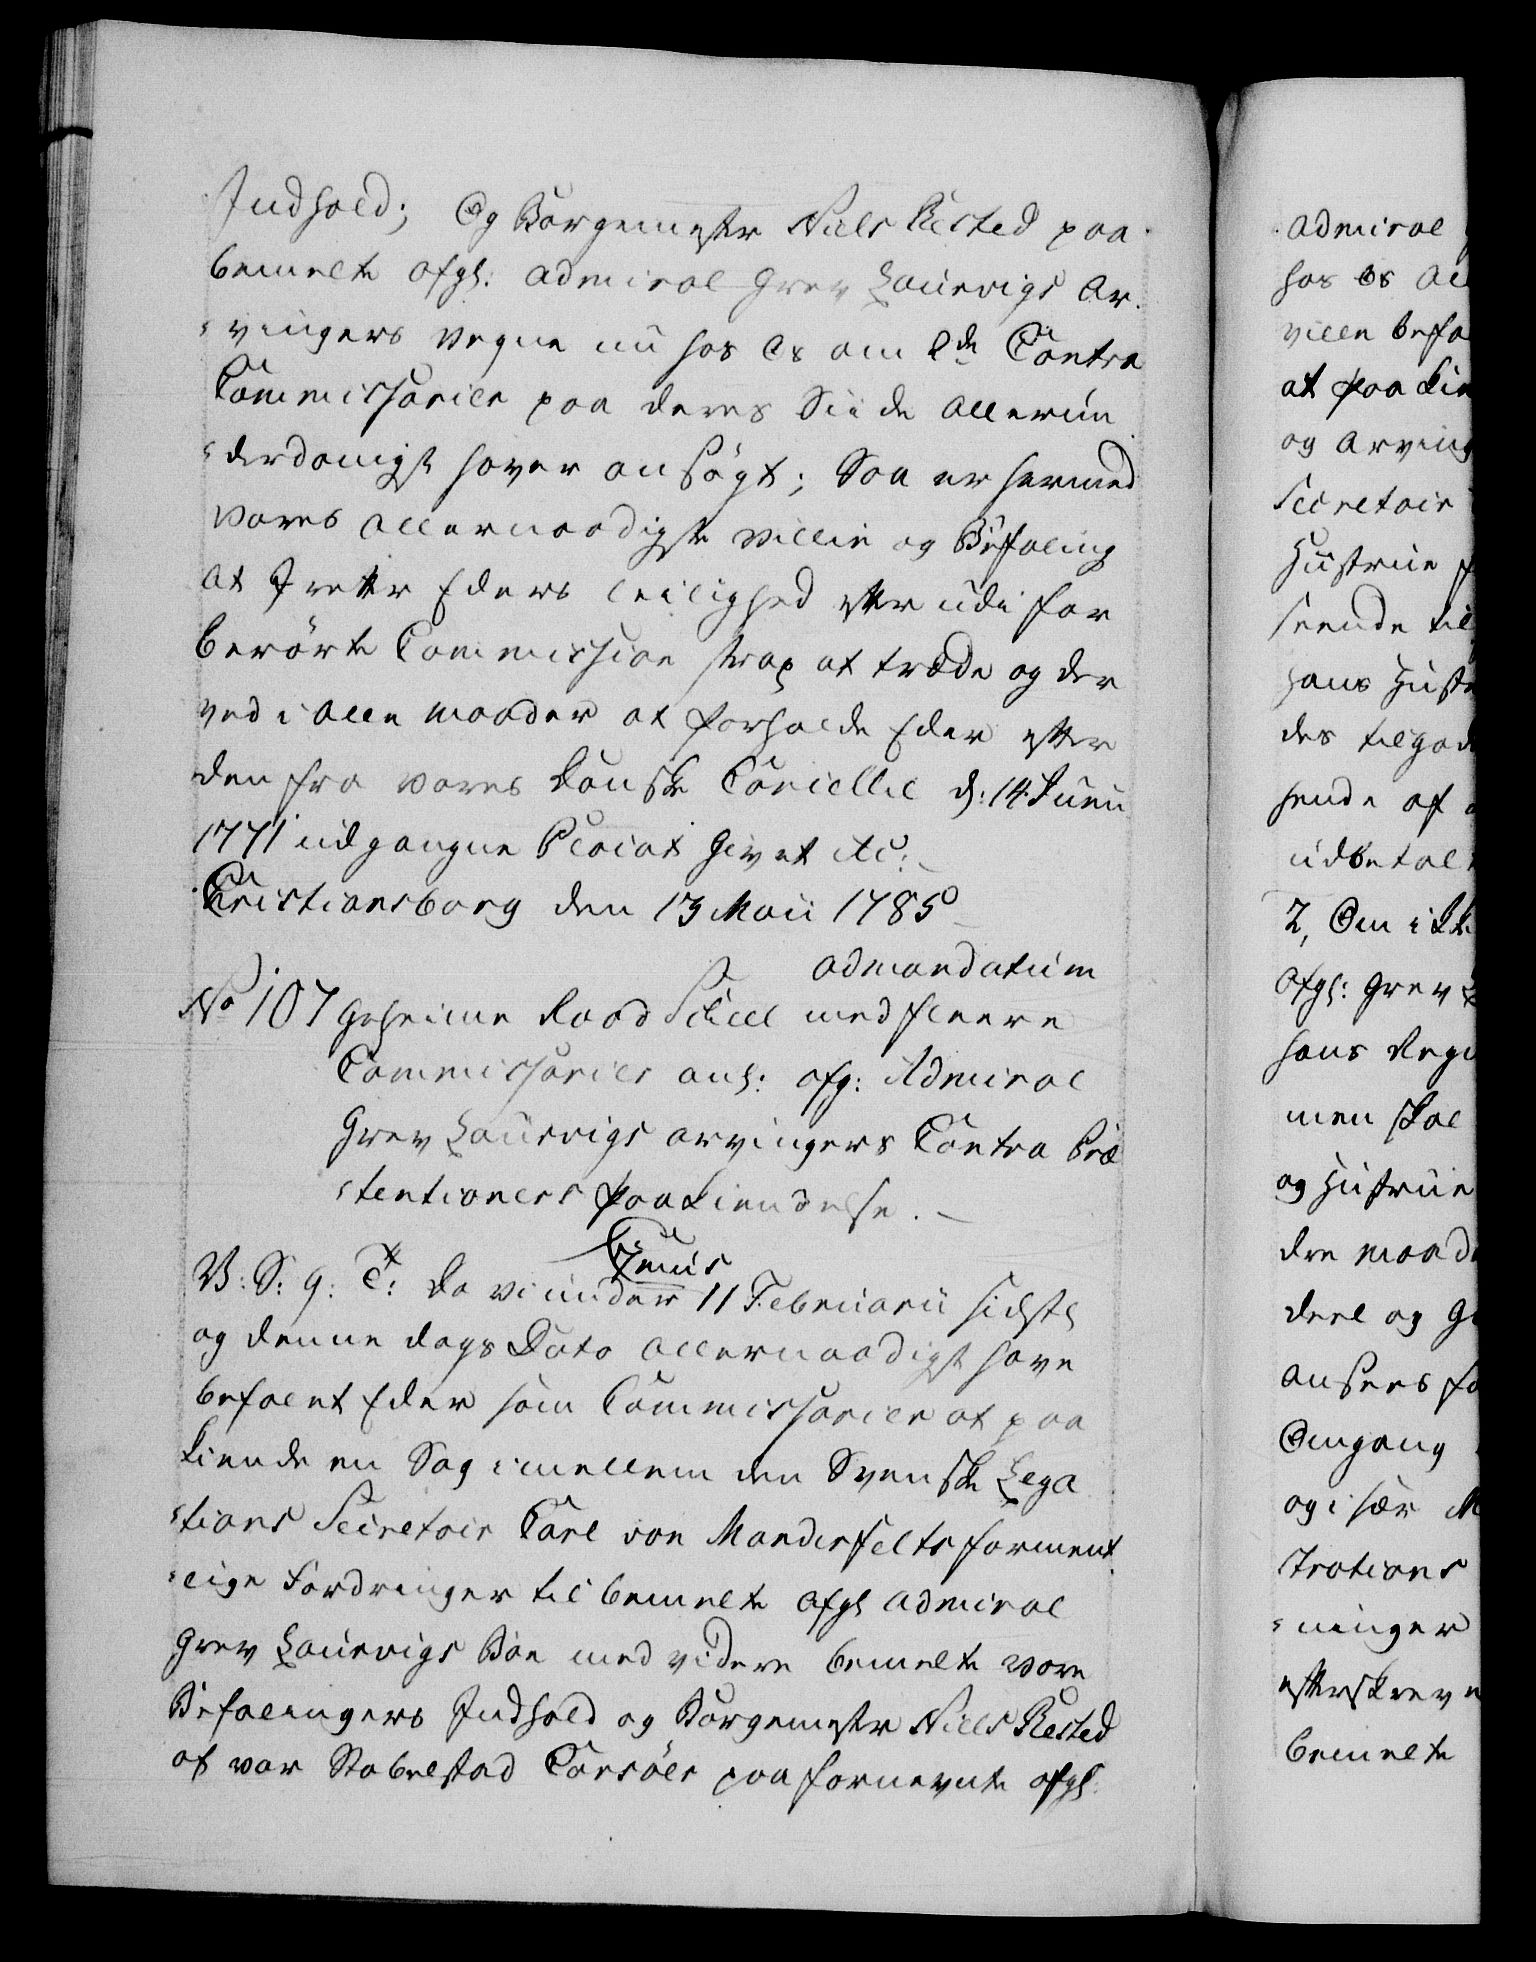 Indhold; Og Borgemester Niels Rested paa
bemelte afgl: Admiral Grev Laurvigs Ar-
vingers Vegne nu hos Os om 2de Contra
Commissarier paa deres Siide allerun-
derdanigst haver ansøgt; Saa er hermed
Vores allernaadigste Villie og Befaling
at I retter Eders leilighed efter udi for
berørte Commission strax at træde og der
ved i alle maader at forholde Eder efter
den fra Vores Danske Cancellie d: 14 Junii
1771 udgangne Placat Givet etc:
Christiansborg den 13 Maii 1785
ad mandatum
No 107 Geheime Raad Schiell med fleere
Commissarier anl: afg: Admiral
Grev Laurvigs arvingers Contra Præ-
tentioners paakiendelse.
V: S: g: T: Da vi under 11 Februarii sidstl
og denne dags Dato allernaadigst have
befalet Eder som Commissarier at paa
kiende en Sag imellem den Svenske Lega-
tions Secretair Carl von Manderfelts forment-
lige Fordringer til bemelte afgl Admiral
Grev Laurvigs Boe med videre bemelte vore
Befalingers Indhold og Borgemester Niels Rested
af vor Stabelstad Corsøer paa fornevnte afgl:
Admiral
hos Os
ville befa
at paakie
og Arving
Secretair
Hustrue
seende til
hans Hust
des tilgod
hende af
udbetal
2, Om ikk
afgl: Grev
hans Regi
men skal
og Hustrue
dre maad
deel og G
ansees fo
Omgang
og i sær M
trations
ninger
efterskreve
bemelte